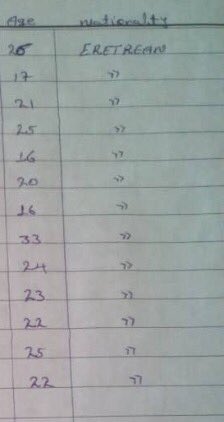 Age Nationality
26 ERETREAN
17 "
21 "
25 "
16 "
20 "
16 "
33 "
24 "
23 "
22 "
25 "
22 "